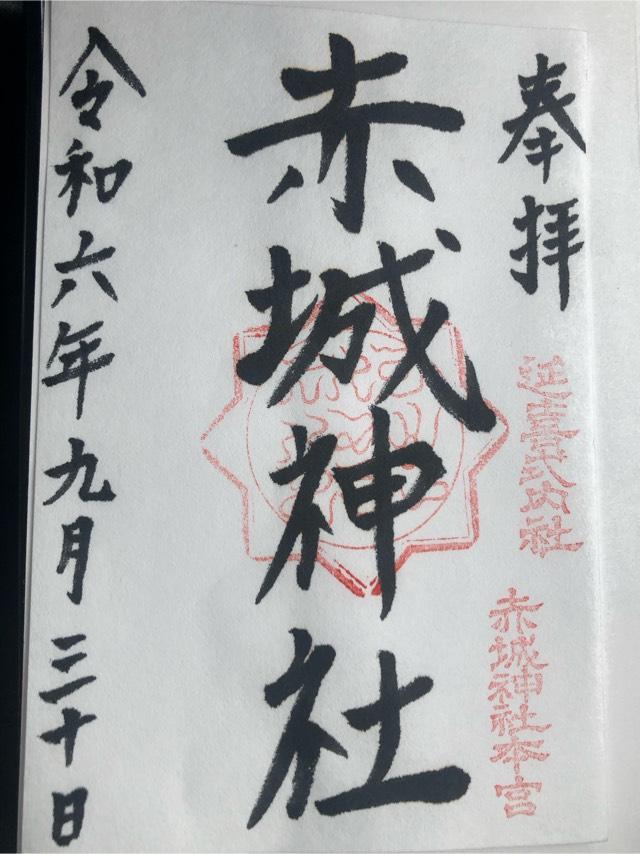 奉拝
延喜式内社
赤城神社本宮
赤城神社
令和六年九月三十日